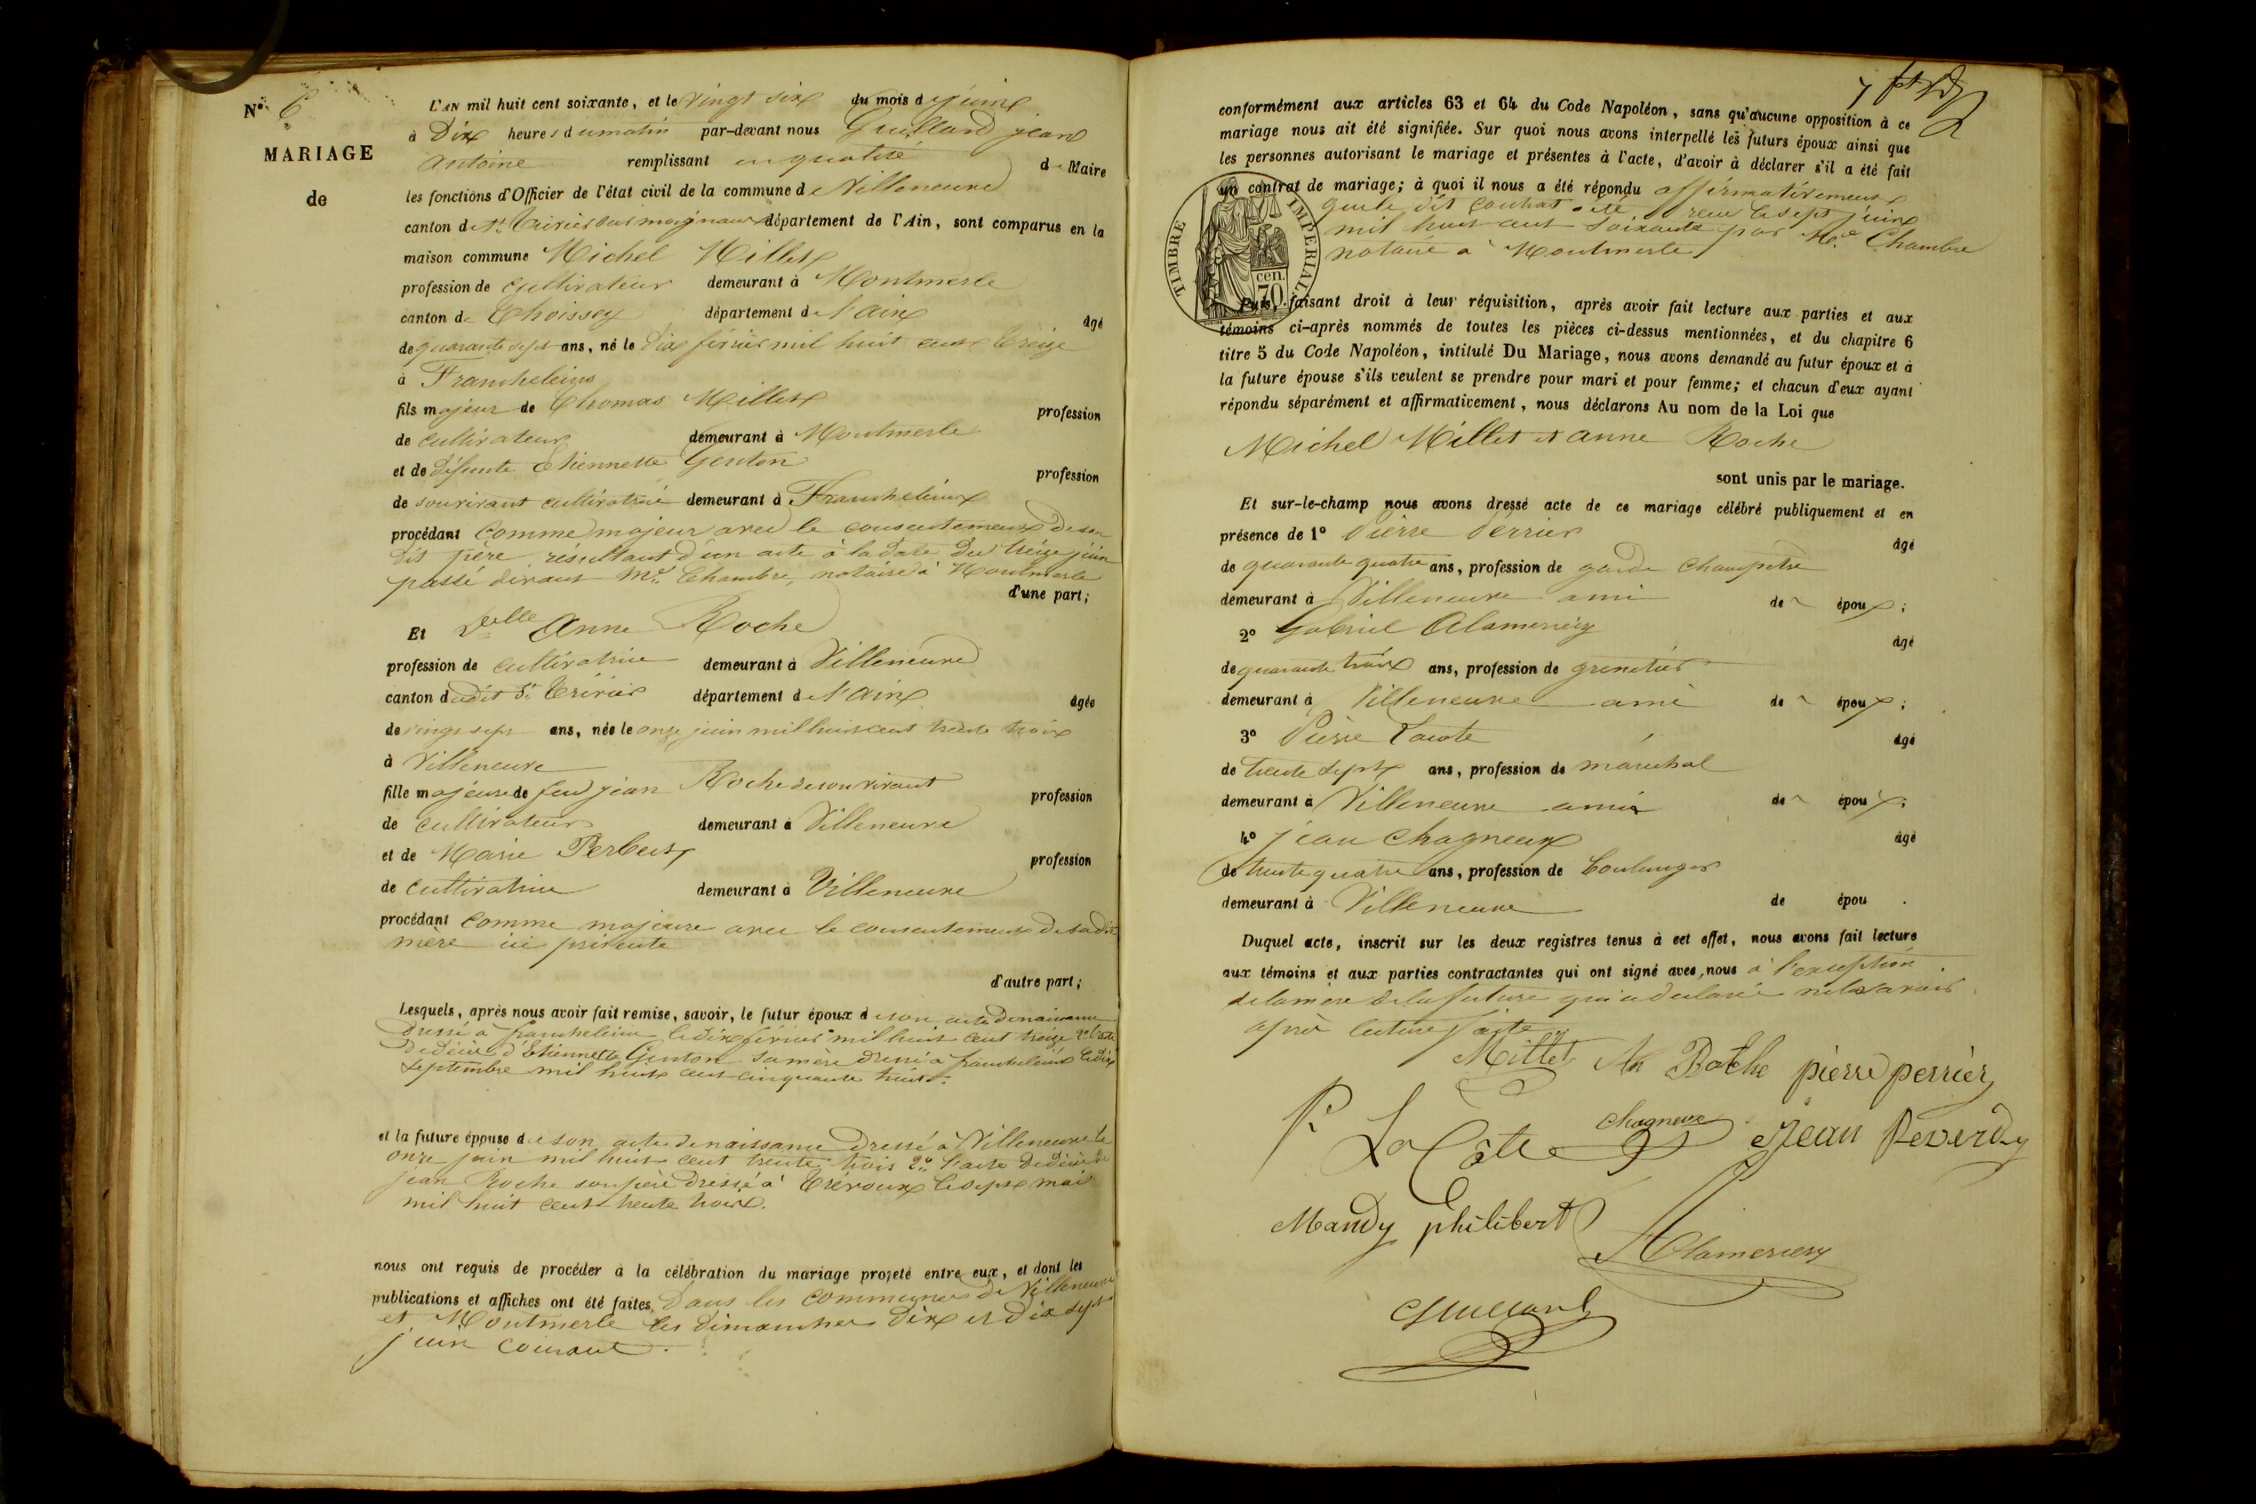 N° 6
MARIAGE
de
L'AN mil huit cent soixante, et le vingt six du mois de juin
à Dix heures du matin par-devant nous Guillard jean
antoine remplissant en qualité de Maire
les fonctions d'Officier de l'état civil de la commune de Villeneuve
canton de St Trivier sur moignans département de l'Ain, sont comparus en la
maison commune Michel Millet
profession de cultivateur demeurant à Montmerle
canton de Thoissey département de l'ain âgé
de quarante sept ans, né le dix février mil huit cent treize
à Francheleins
fils majeur de Thomas Millet profession
de cultivateur demeurant à Montmerle
et de défunte Etiennette Genton profession
de son vivant cultivatrice demeurant à Francheleins
procédant comme majeur avec le consentement de son
dit père, résultant d'un acte à la date du treize juin
passé devant Me Chambre, notaire à Montmerle
d'une part;
Et Delle Anne Roche
profession de cultivatrice demeurant à Villeneuve
canton dudit St Trivier département de l'ain âgée
de vingt sept ans, née le onze juin mil huit cent trente trois
à Villeneuve
fille majeure de feu jean Roche de son vivant profession
de cultivateur demeurant à Villeneuve
et de Marie Berbet profession
de cultivatrice demeurant à Villeneuve
procédant comme majeure avec le consentement de sa dite
mère ici présente
d'autre part;
Lesquels, après nous avoir fait remise, savoir, le futur époux de son acte de naissance
dressé à francheleins le dix février mil huit cent treize 2° l'acte
de décès d'Etiennette Genton sa mère dressé à francheleins le dix
septembre mil huit cent cinquante
et la future épouse de son acte de naissance dressé à Villeneuve le
onze juin mil huit cent trente trois 2° l'acte de décès de
jean Roche son père dressé à Trévoux le sept mai
mil huit cent trente trois.
nous ont requis de procéder à la célébration du mariage projeté entre eux, et dont les
publications et affiches ont été faites dans les communes de Villeneuve
et Montmerle les dimanches dix et dix sept
juin courant.
7
conformément aux articles 63 et 64 du Code Napoléon, sans qu'aucune opposition à ce
mariage nous ait été signifiée. Sur quoi nous avons interpellé les futurs époux ainsi que
les personnes autorisant le mariage et présentes à l'acte, d'avoir à déclarer s'il a été fait
un contrat de mariage; à quoi il nous a été répondu affirmativement
que le dit contrat a été reçu le sept juin
mil huit cent soixante par Me Chambre
notaire à Montmerle
TIMBRE IMPERIAL
70 cen.
Puis, faisant droit à leur réquisition, après avoir fait lecture aux parties et aux
témoins ci-après nommés de toutes les pièces ci-dessus mentionnées, et du chapitre 6
titre 5 du Code Napoléon, intitulé Du Mariage, nous avons demandé au futur époux et à
la future épouse s'ils veulent se prendre pour mari et pour femme; et chacun d'eux ayant
répondu séparément et affirmativement, nous déclarons Au nom de la Loi que
Michel Millet et anne Roche
sont unis par le mariage.
Et sur-le-champ nous avons dressé acte de ce mariage célébré publiquement et en
présence de 1° Pierre Perrier âgé
de quarante quatre ans, profession de garde champêtre
demeurant à Villeneuve ami de époux;
2° Gabriel Clamerecy âgé
de quarante trois ans, profession de grenetier
demeurant à Villeneuve ami de époux;
3° Pierre Lacote âgé
de trente sept ans, profession de maréchal
demeurant à Villeneuve ami de époux;
4° jean Chagneux âgé
de trente quatre ans, profession de boulanger
demeurant à Villeneuve de épou .
Duquel acte, inscrit sur les deux registres tenus à cet effet, nous avons fait lecture
aux témoins et aux parties contractantes qui ont signé avec nous à l'exception
de la mère de la future qui a déclaré ne le savoir
après lecture faite
Millet An Roche pierre perrier
P. La Côte chagneux Jean Reverdy
Mandy philibert
Guillard